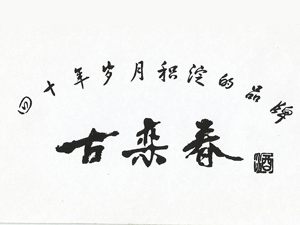 四十年岁月积淀的品牌
古栾春
酒